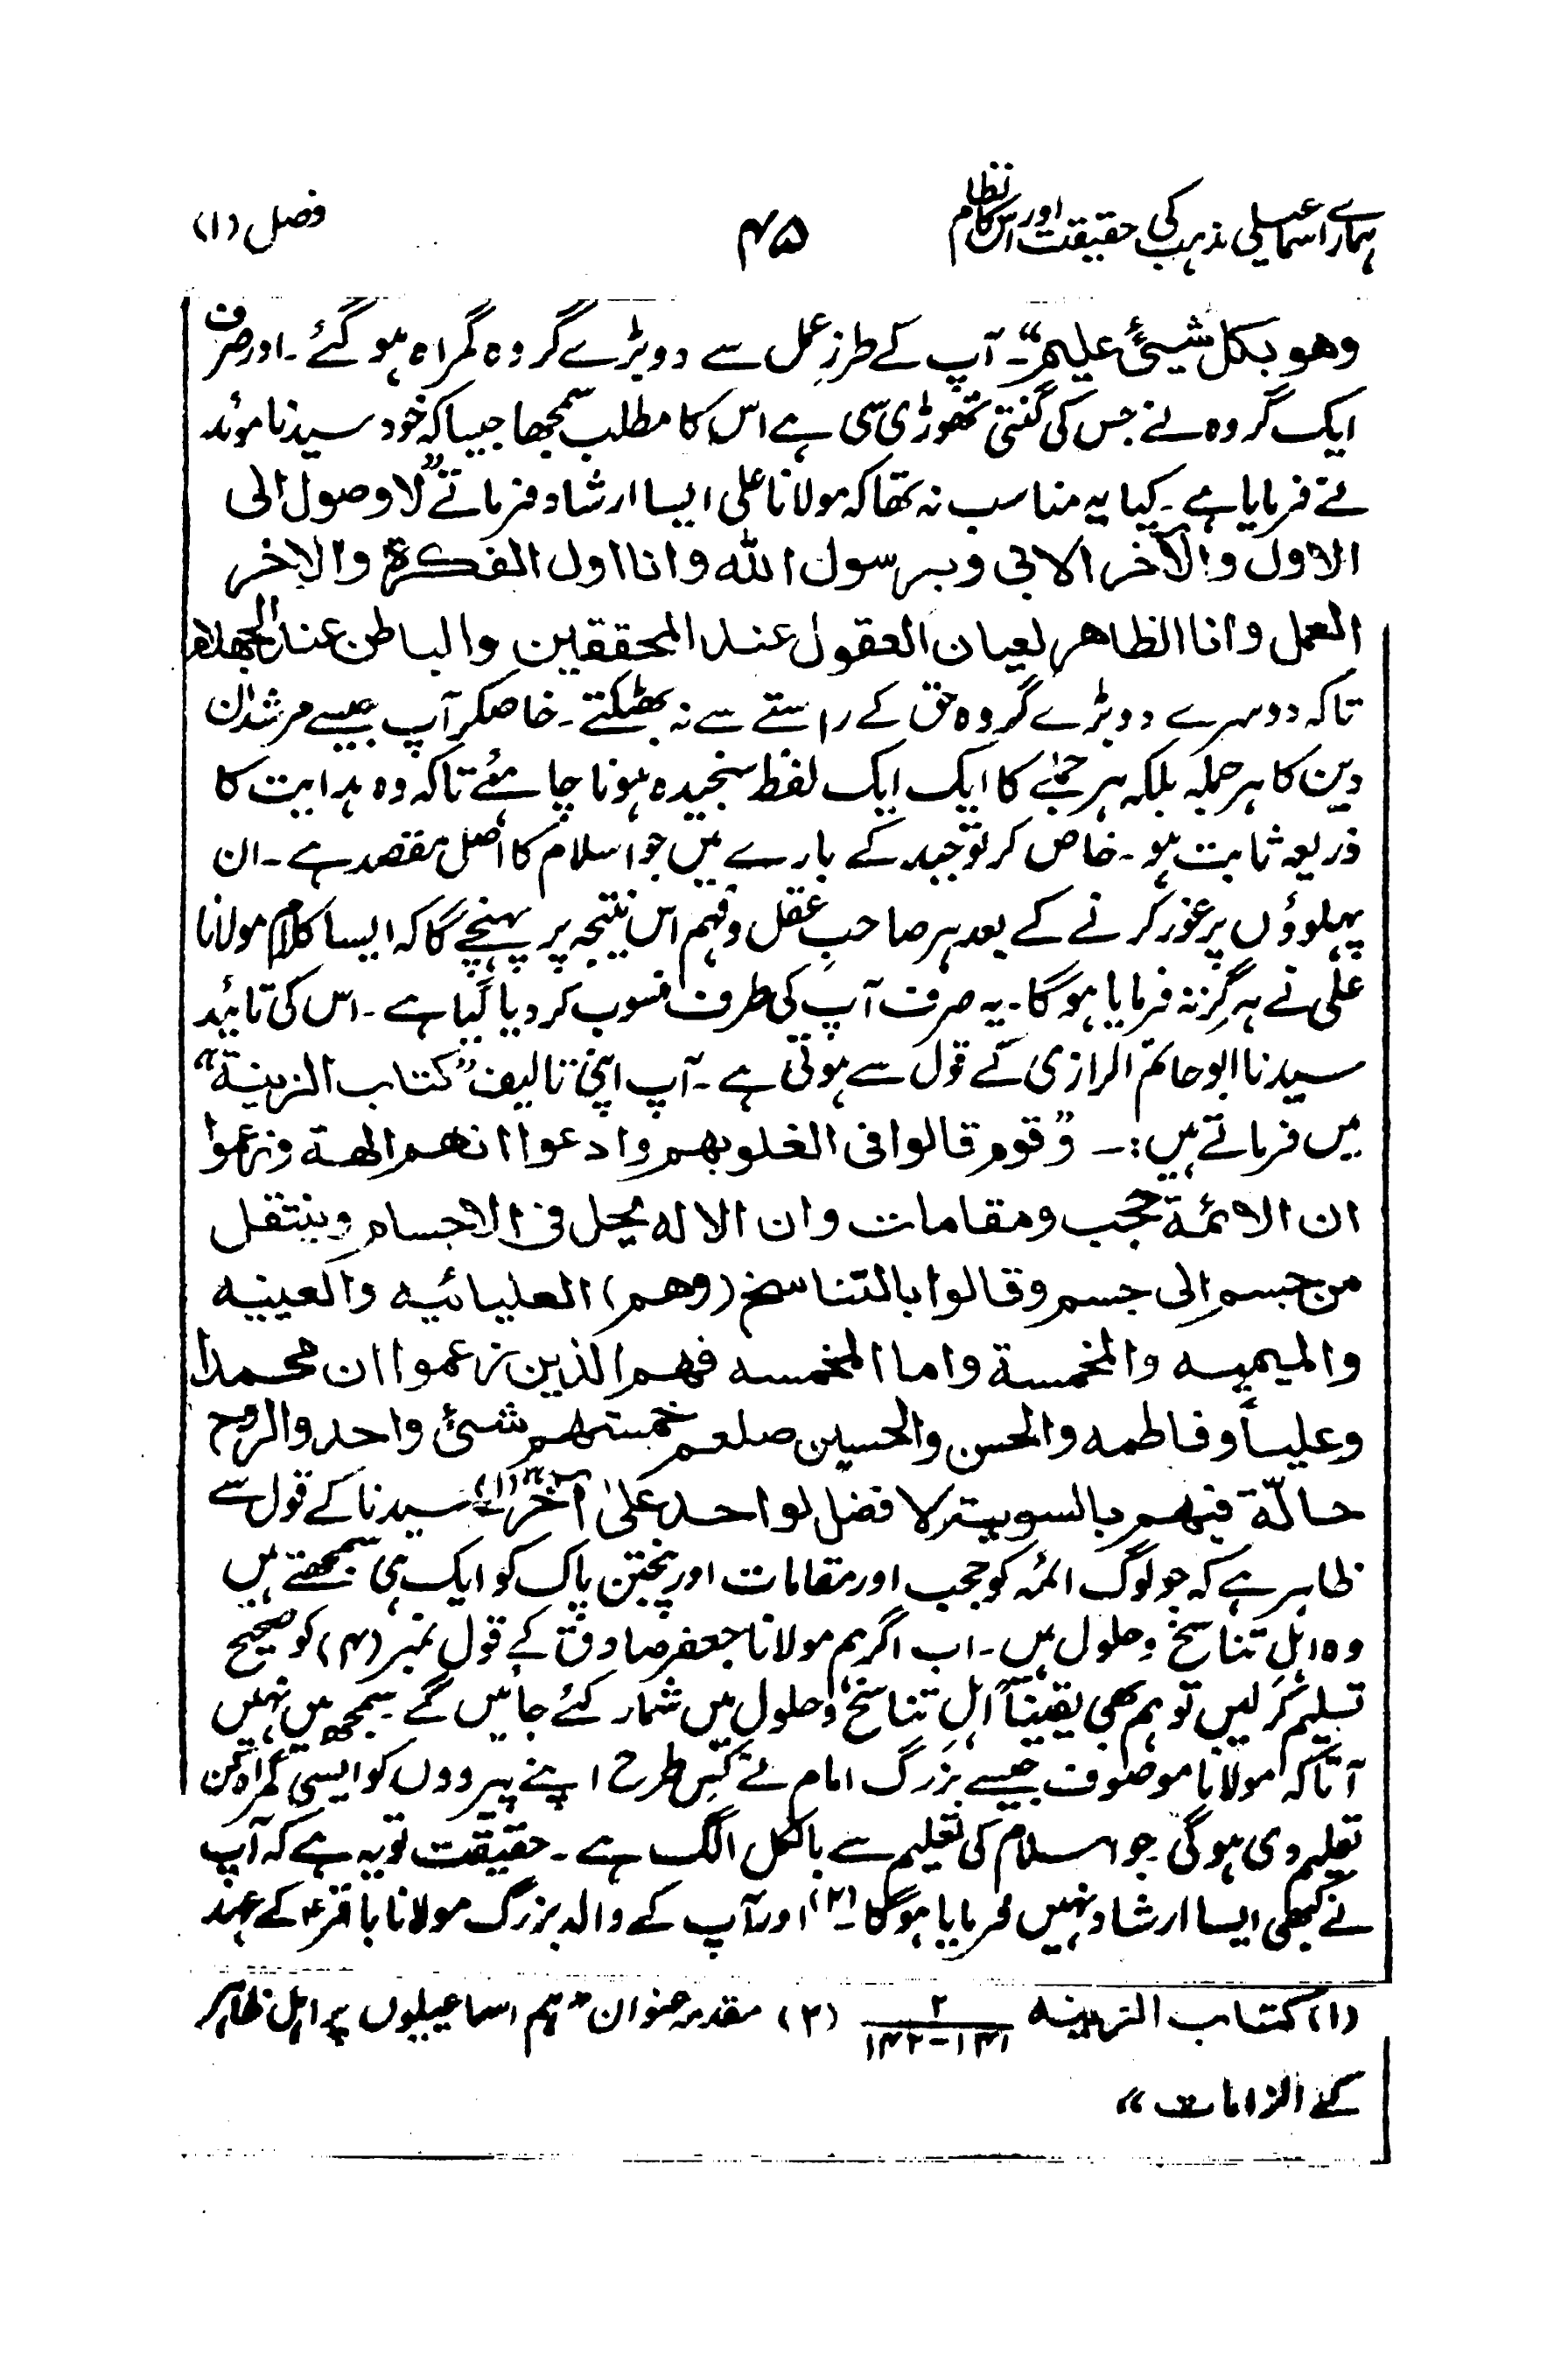 ہمارے اسماعیلی مذہب کی حقیقت اور اس کا نظام ۴۵ فصل (۱)
وھو بکل شیئٍ علیم"۔ آپ کے طرزِ عمل سے دو بڑے گروہ گمراہ ہو گئے ۔ اور صرف
ایک گروہ نے جس کی گنتی تھوڑی سی ہے اس کا مطلب سمجھا جیسا کہ خود سیدنا موئد
نے فرمایا ہے ۔ کیا یہ مناسب نہ تھا کہ مولانا علی ایسا ارشاد فرماتے "لا وصول الی
الاول والآخر الا بی وبرسول اللہ وانا اول الفکرۃ والاٰخر
العمل وانا الظاھر لعیان العقول عند المحققین والباطن عند الجھلاء
تاکہ دوسرے دو بڑے گروہ حق کے راستے سے نہ بھٹکتے ۔ خاصکر آپ جیسے مرشدان
دین کا ہر جملہ بلکہ ہر جملے کا ایک ایک لفظ سنجیدہ ہونا چاہئے تاکہ وہ ہدایت کا
ذریعہ ثابت ہو ۔ خاص کر توحید کے بارے میں جو اسلام کا اصل مقصد ہے ۔ ان
پہلوؤں پر غور کرنے کے بعد ہر صاحبِ عقل و فہم اس نتیجہ پر پہنچے گا کہ ایسا کلام مولانا
علی نے ہرگز نہ فرمایا ہوگا ۔ یہ صرف آپ کی طرف منسوب کر دیا گیا ہے ۔ اس کی تائید
سیدنا ابو حاتم الرازی کے قول سے ہوتی ہے ۔ آپ اپنی تالیف "کتاب الزینۃ"
میں فرماتے ہیں :۔ "وقوم قالوا فی الغلو بھم وادعوا انھم الھۃ وزعموا
ان الائمۃ حجب ومقامات وان الالہ یحل فی الاجسام وینتقل
من جسم الی جسم وقالوا بالتناسخ (وھم) العلیائیہ والعینیہ
والمیمیہ والمخمسۃ واما المخمسہ فھم الذین زعموا ان محمدا
وعلیاً وفاطمہ والحسن والحسین صلعم خمستھم شیئ واحد والروح
حالّۃ فیھم بالسویۃ لا فضل لواحد علیٰ آخر" (۱) سیدنا کے قول سے
ظاہر ہے کہ جو لوگ ائمہ کو حجب اور مقامات اور پنجتن پاک کو ایک ہی سمجھتے ہیں
وہ اہل تناسخ و حلول ہیں ۔ اب اگر ہم مولانا جعفر صادق کے قول نمبر (۴) کو صحیح
تسلیم کر لیں تو ہم بھی یقیناً اہلِ تناسخ و حلول میں شمار کئے جائیں گے ۔ سمجھ میں نہیں
آتا کہ مولانا موصوف جیسے بزرگ امام نے کس طرح اپنے پیرووں کو ایسی گمراہ کن
تعلیم دی ہوگی جو اسلام کی تعلیم سے بالکل الگ ہے ۔ حقیقت تو یہ ہے کہ آپ
نے کبھی ایسا ارشاد نہیں فرمایا ہوگا ۔(۲) اور آپ کے والد بزرگ مولانا باقرؑ کے عہد
(۱) کتاب الزینہ ۲ / ۱۴۱-۱۴۲ (۲) مقدمہ عنوان "ہم اسماعیلیوں پر اہل ظاہر
کے الزامات"